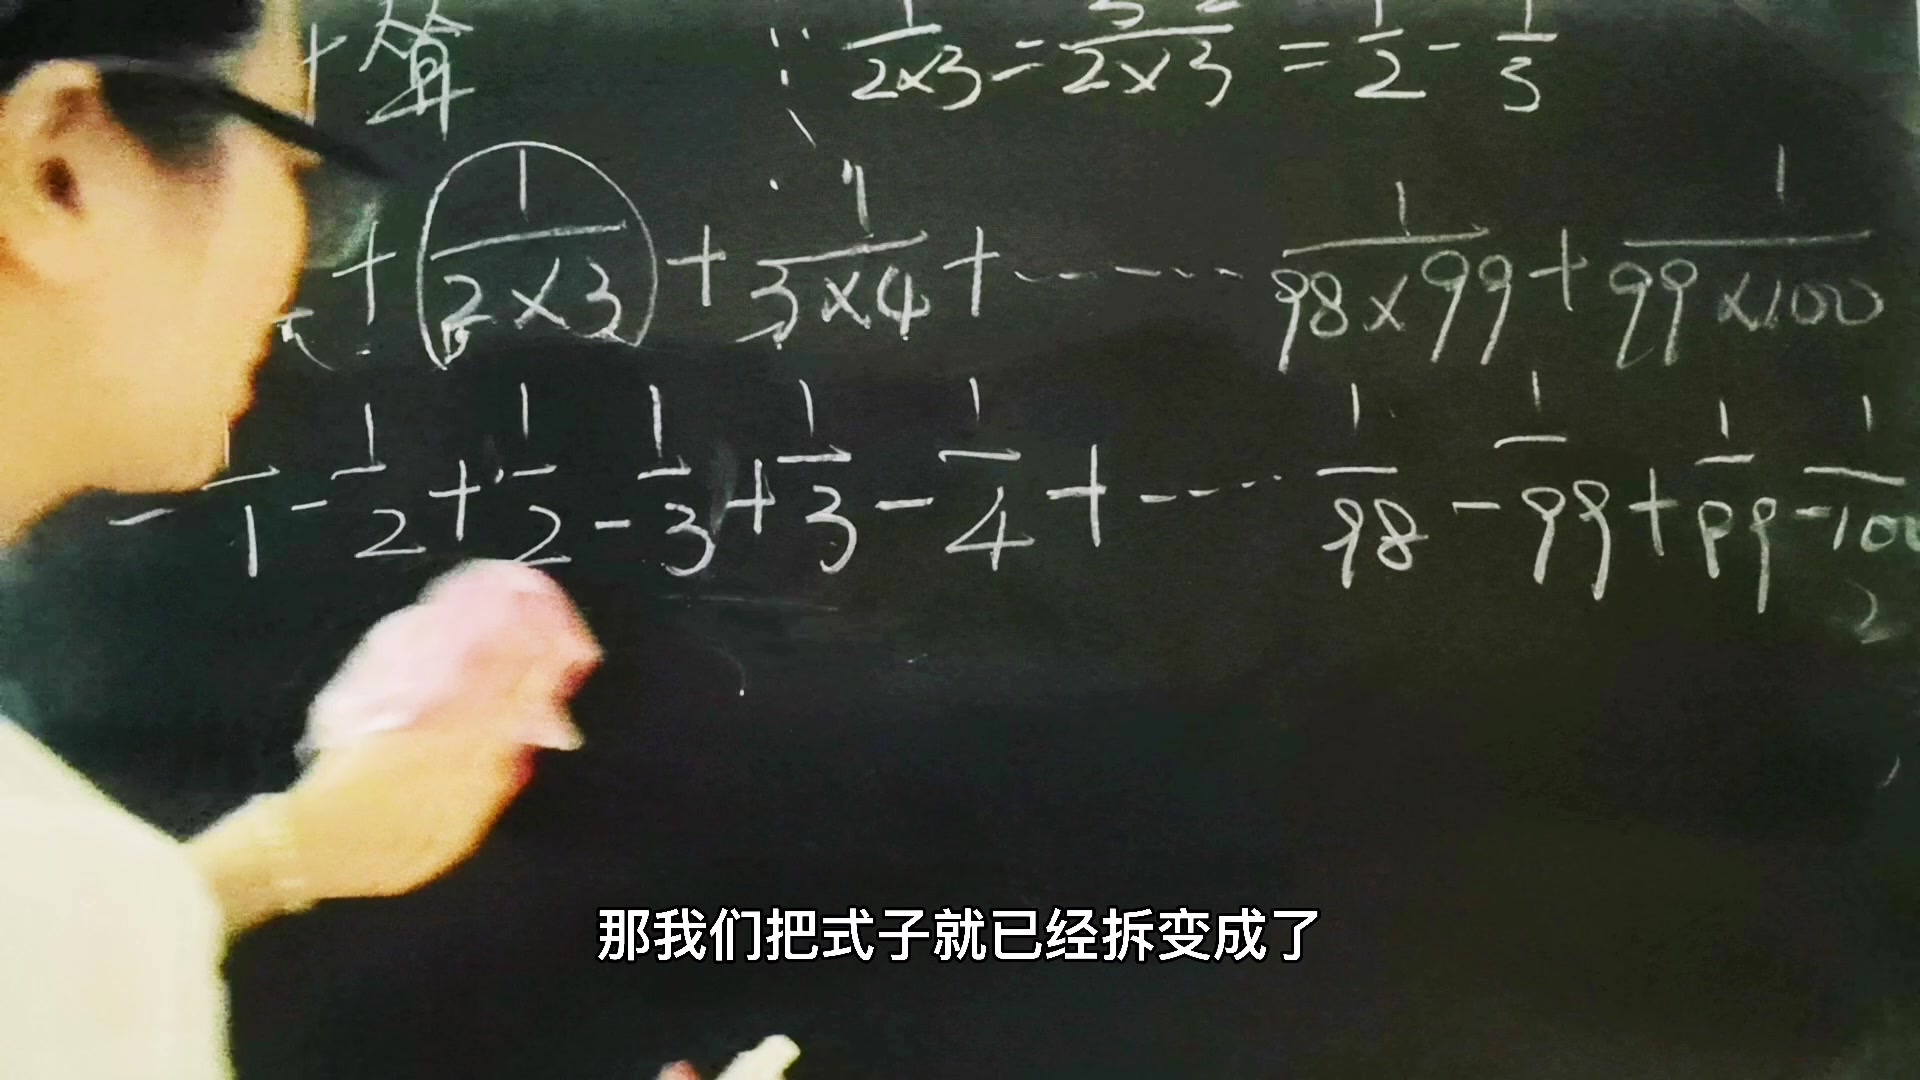 计算 1/2×3 = 3-2/2×3 = 1/2 - 1/3
+ 1/2×3 + 1/3×4 + …… 1/98×99 + 1/99×100
= 1/1 - 1/2 + 1/2 - 1/3 + 1/3 - 1/4 + …… 1/98 - 1/99 + 1/99 - 1/100
那我们把式子就已经拆变成了